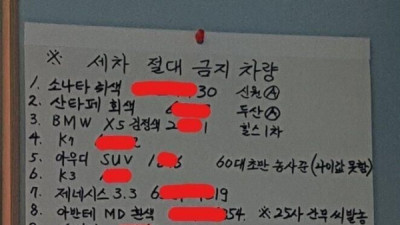 ※ 세차 절대 금지 차량
1. 소나타 30 신원 Ⓐ
2. 산타페 회색 6 두산 Ⓐ
3. BMW X5 검정색 2 1 힐스 1차
4. K9
5. 아우디 SUV 1 6 60대초반 농사준 (나이값 못함)
6. K3
7. 제네시스 3.3 6 19
8. 아반테 MD 흰색 054. ※ 25사 간부 씨발놈